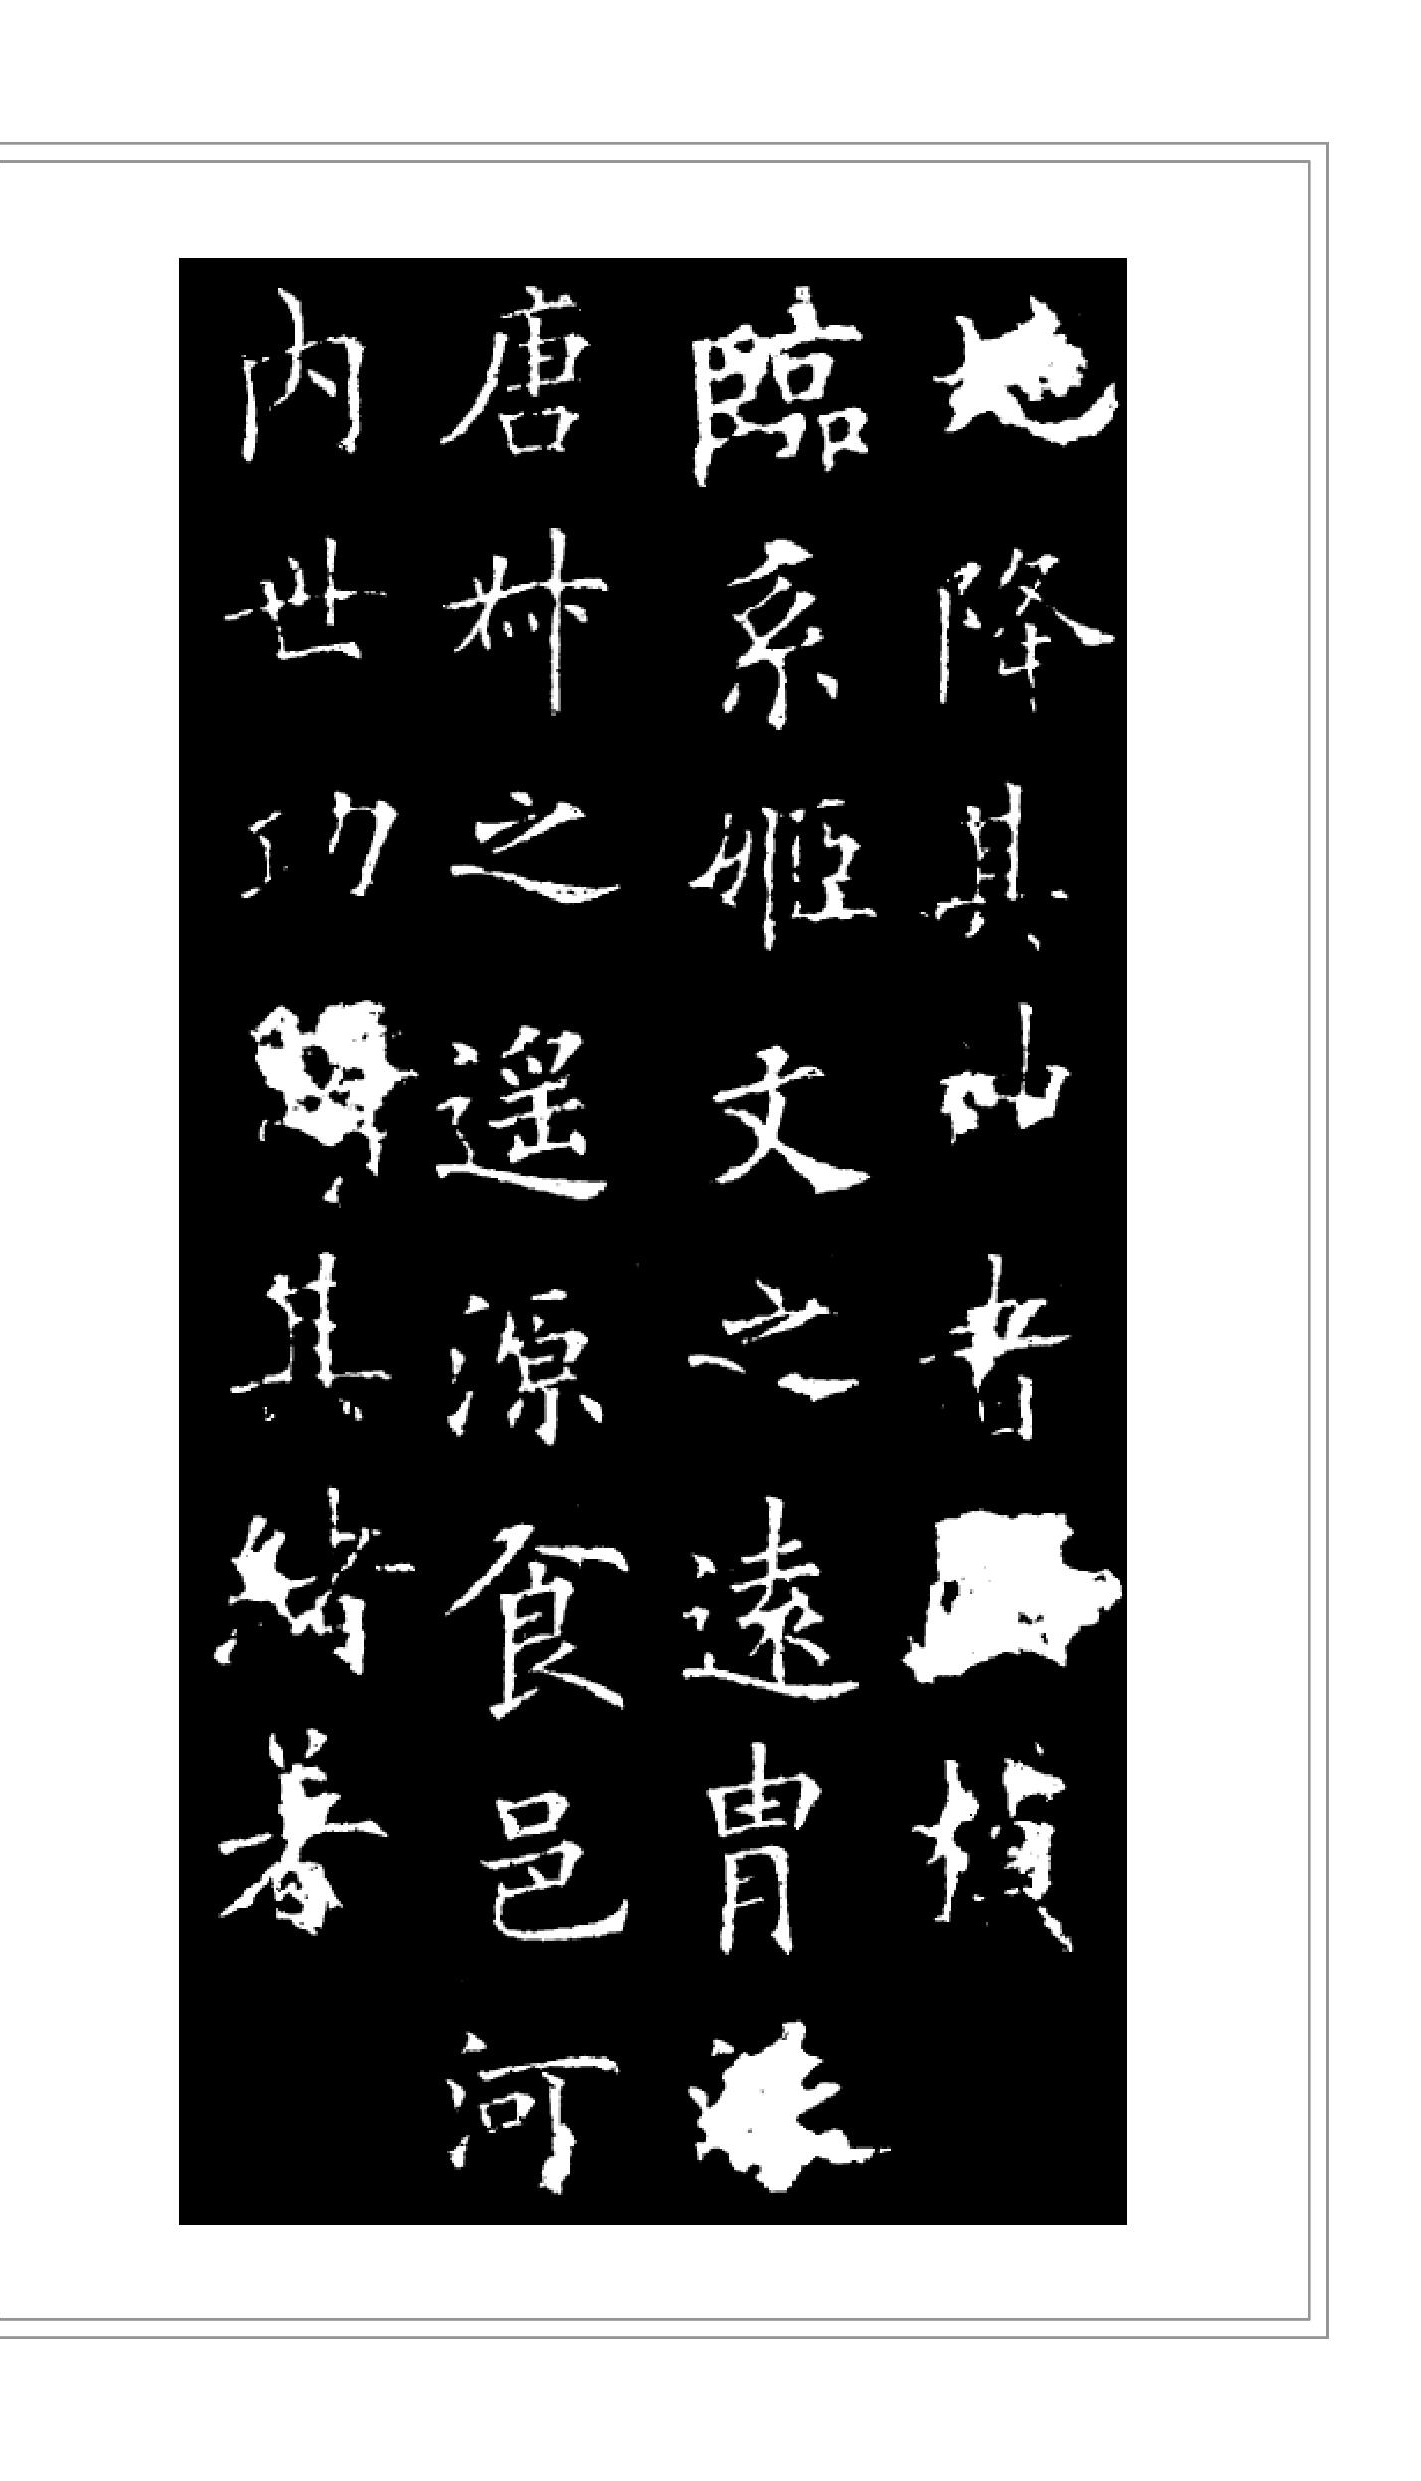 地降其山者楨
臨系姬文之遠胄
唐叔之遥源食邑河
内世功其緒著